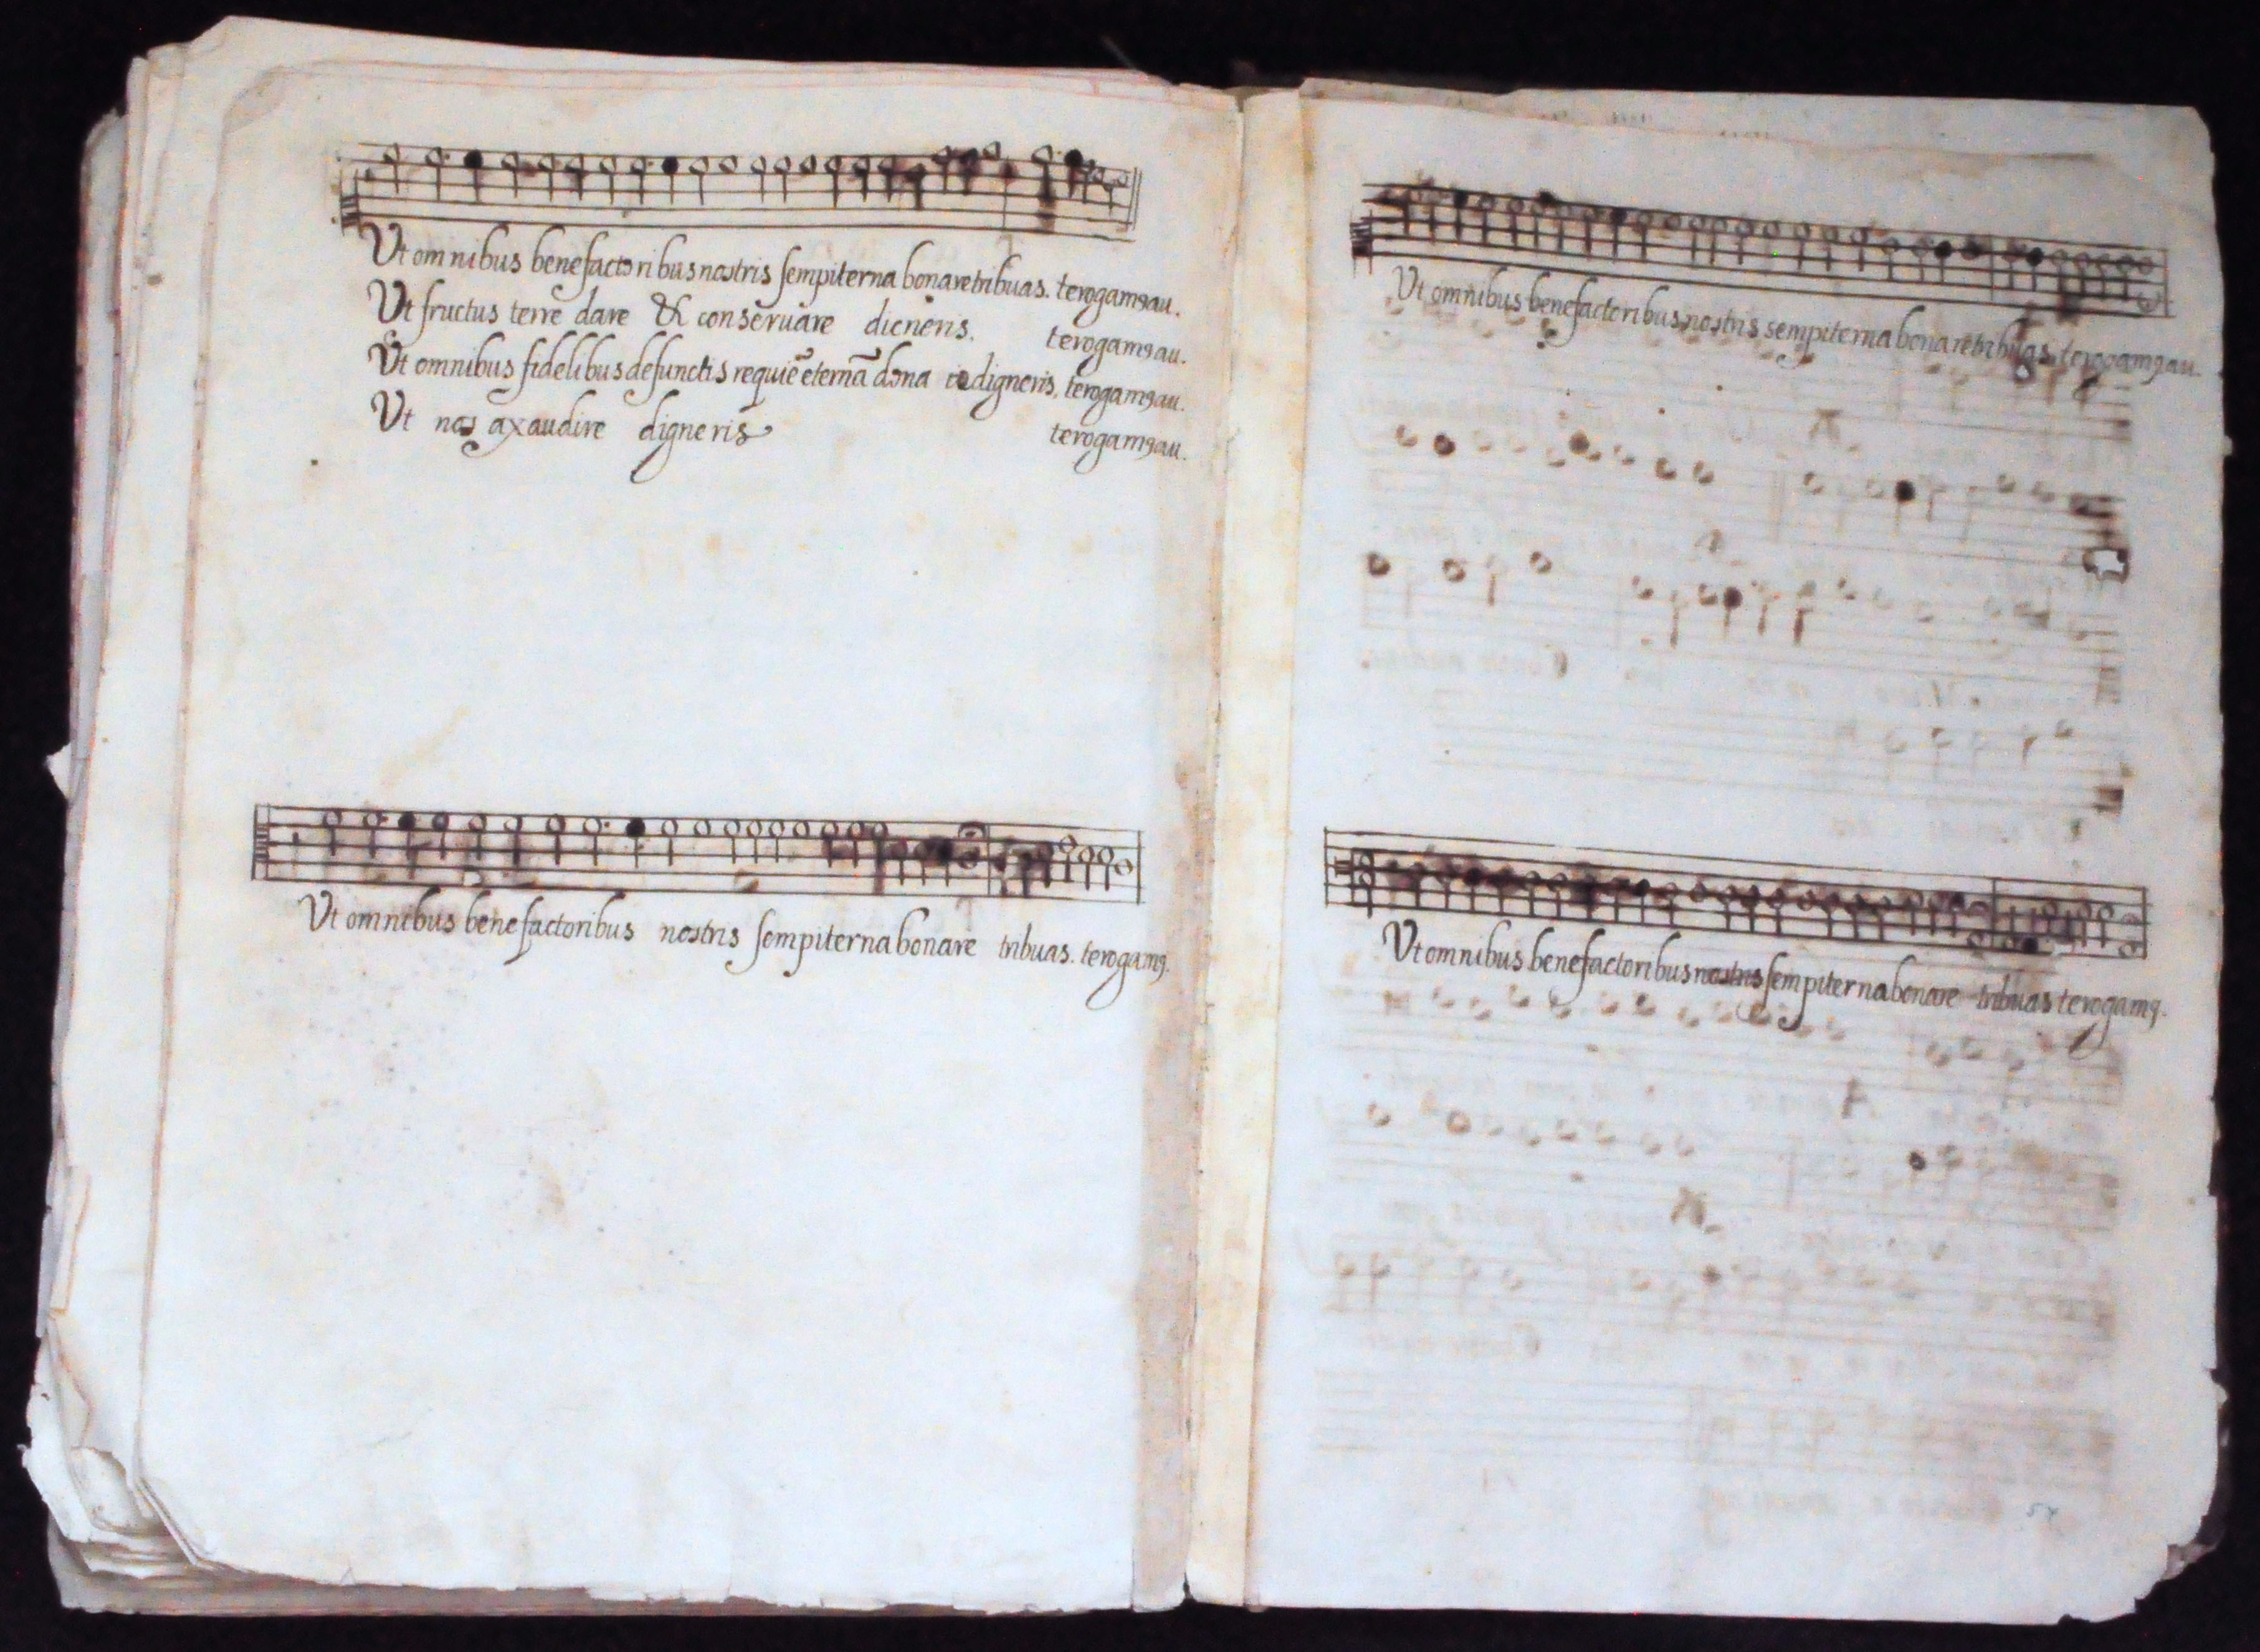 Ut omnibus benefactoribus nostris sempiterna bona retribuas. te rogamꝯ au.
Ut fructus terre dare & conservare digneris. te rogamꝯ au.
Ut omnibus fidelibus defunctis requiē eternā dona digneris, te rogamꝯ au.
Ut nos axaudire digneris te rogamꝯ au.
Ut omnibus benefactoribus nostris sempiterna bona re tribuas. te rogamꝯ.
Ut omnibus benefactoribus nostris sempiterna bona retribuas. te rogamꝯ au.
Ut omnibus benefactoribus nostris sempiterna bona re tribuas te rogamꝯ.
54